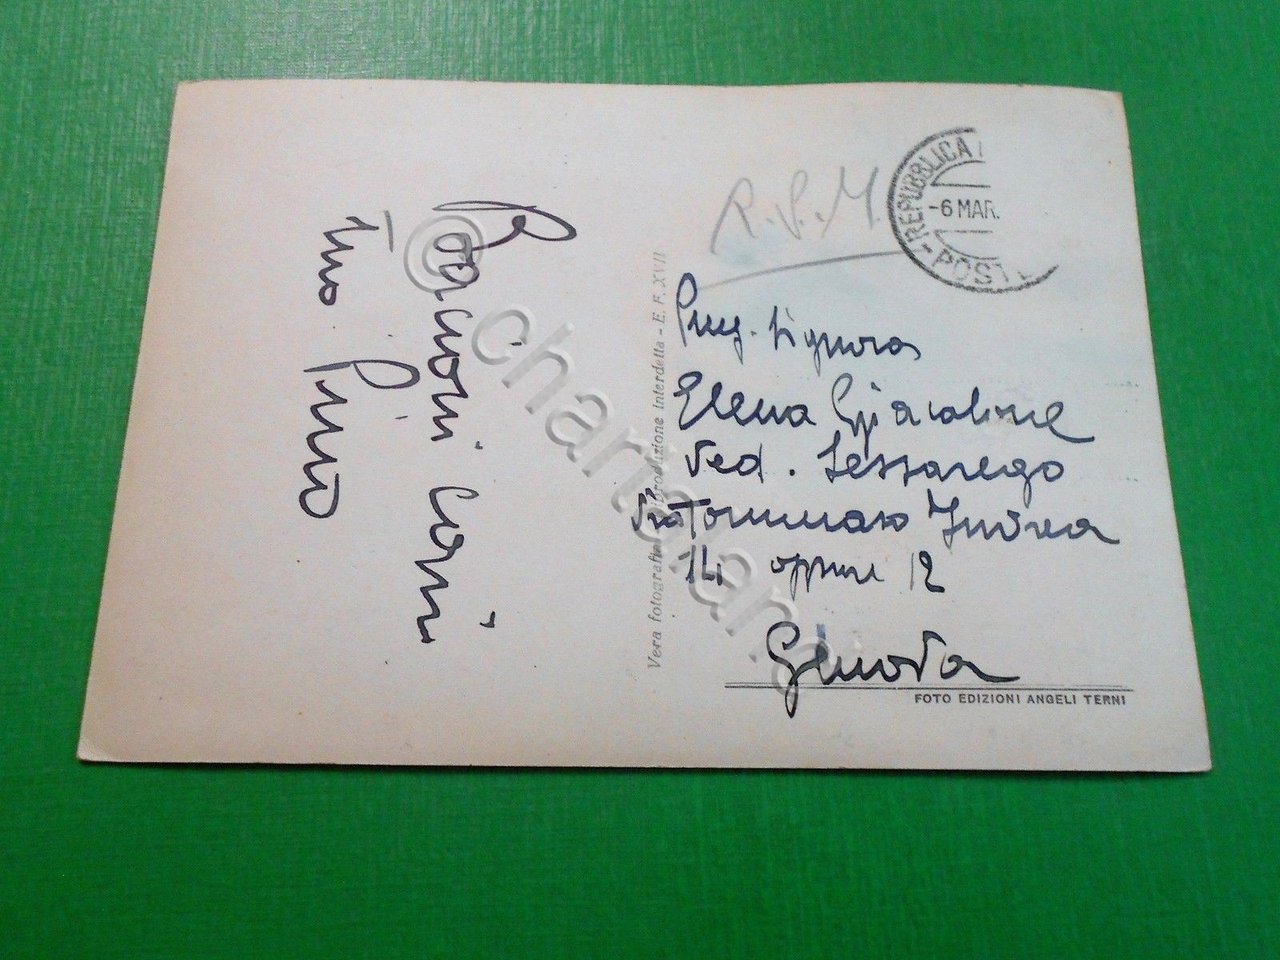 Bacioni cari
tuo Pino
Vera fotografia - riproduzione interdetta - E. F. XVII
R.S.M.
REPUBBLICA
-6 MAR.
POSTE
Signora
Elena Giacalone
Ved. Lessarego
Via Tommaso Invrea
14 oppure 12
Genova
FOTO EDIZIONI ANGELI TERNI
© chartaland